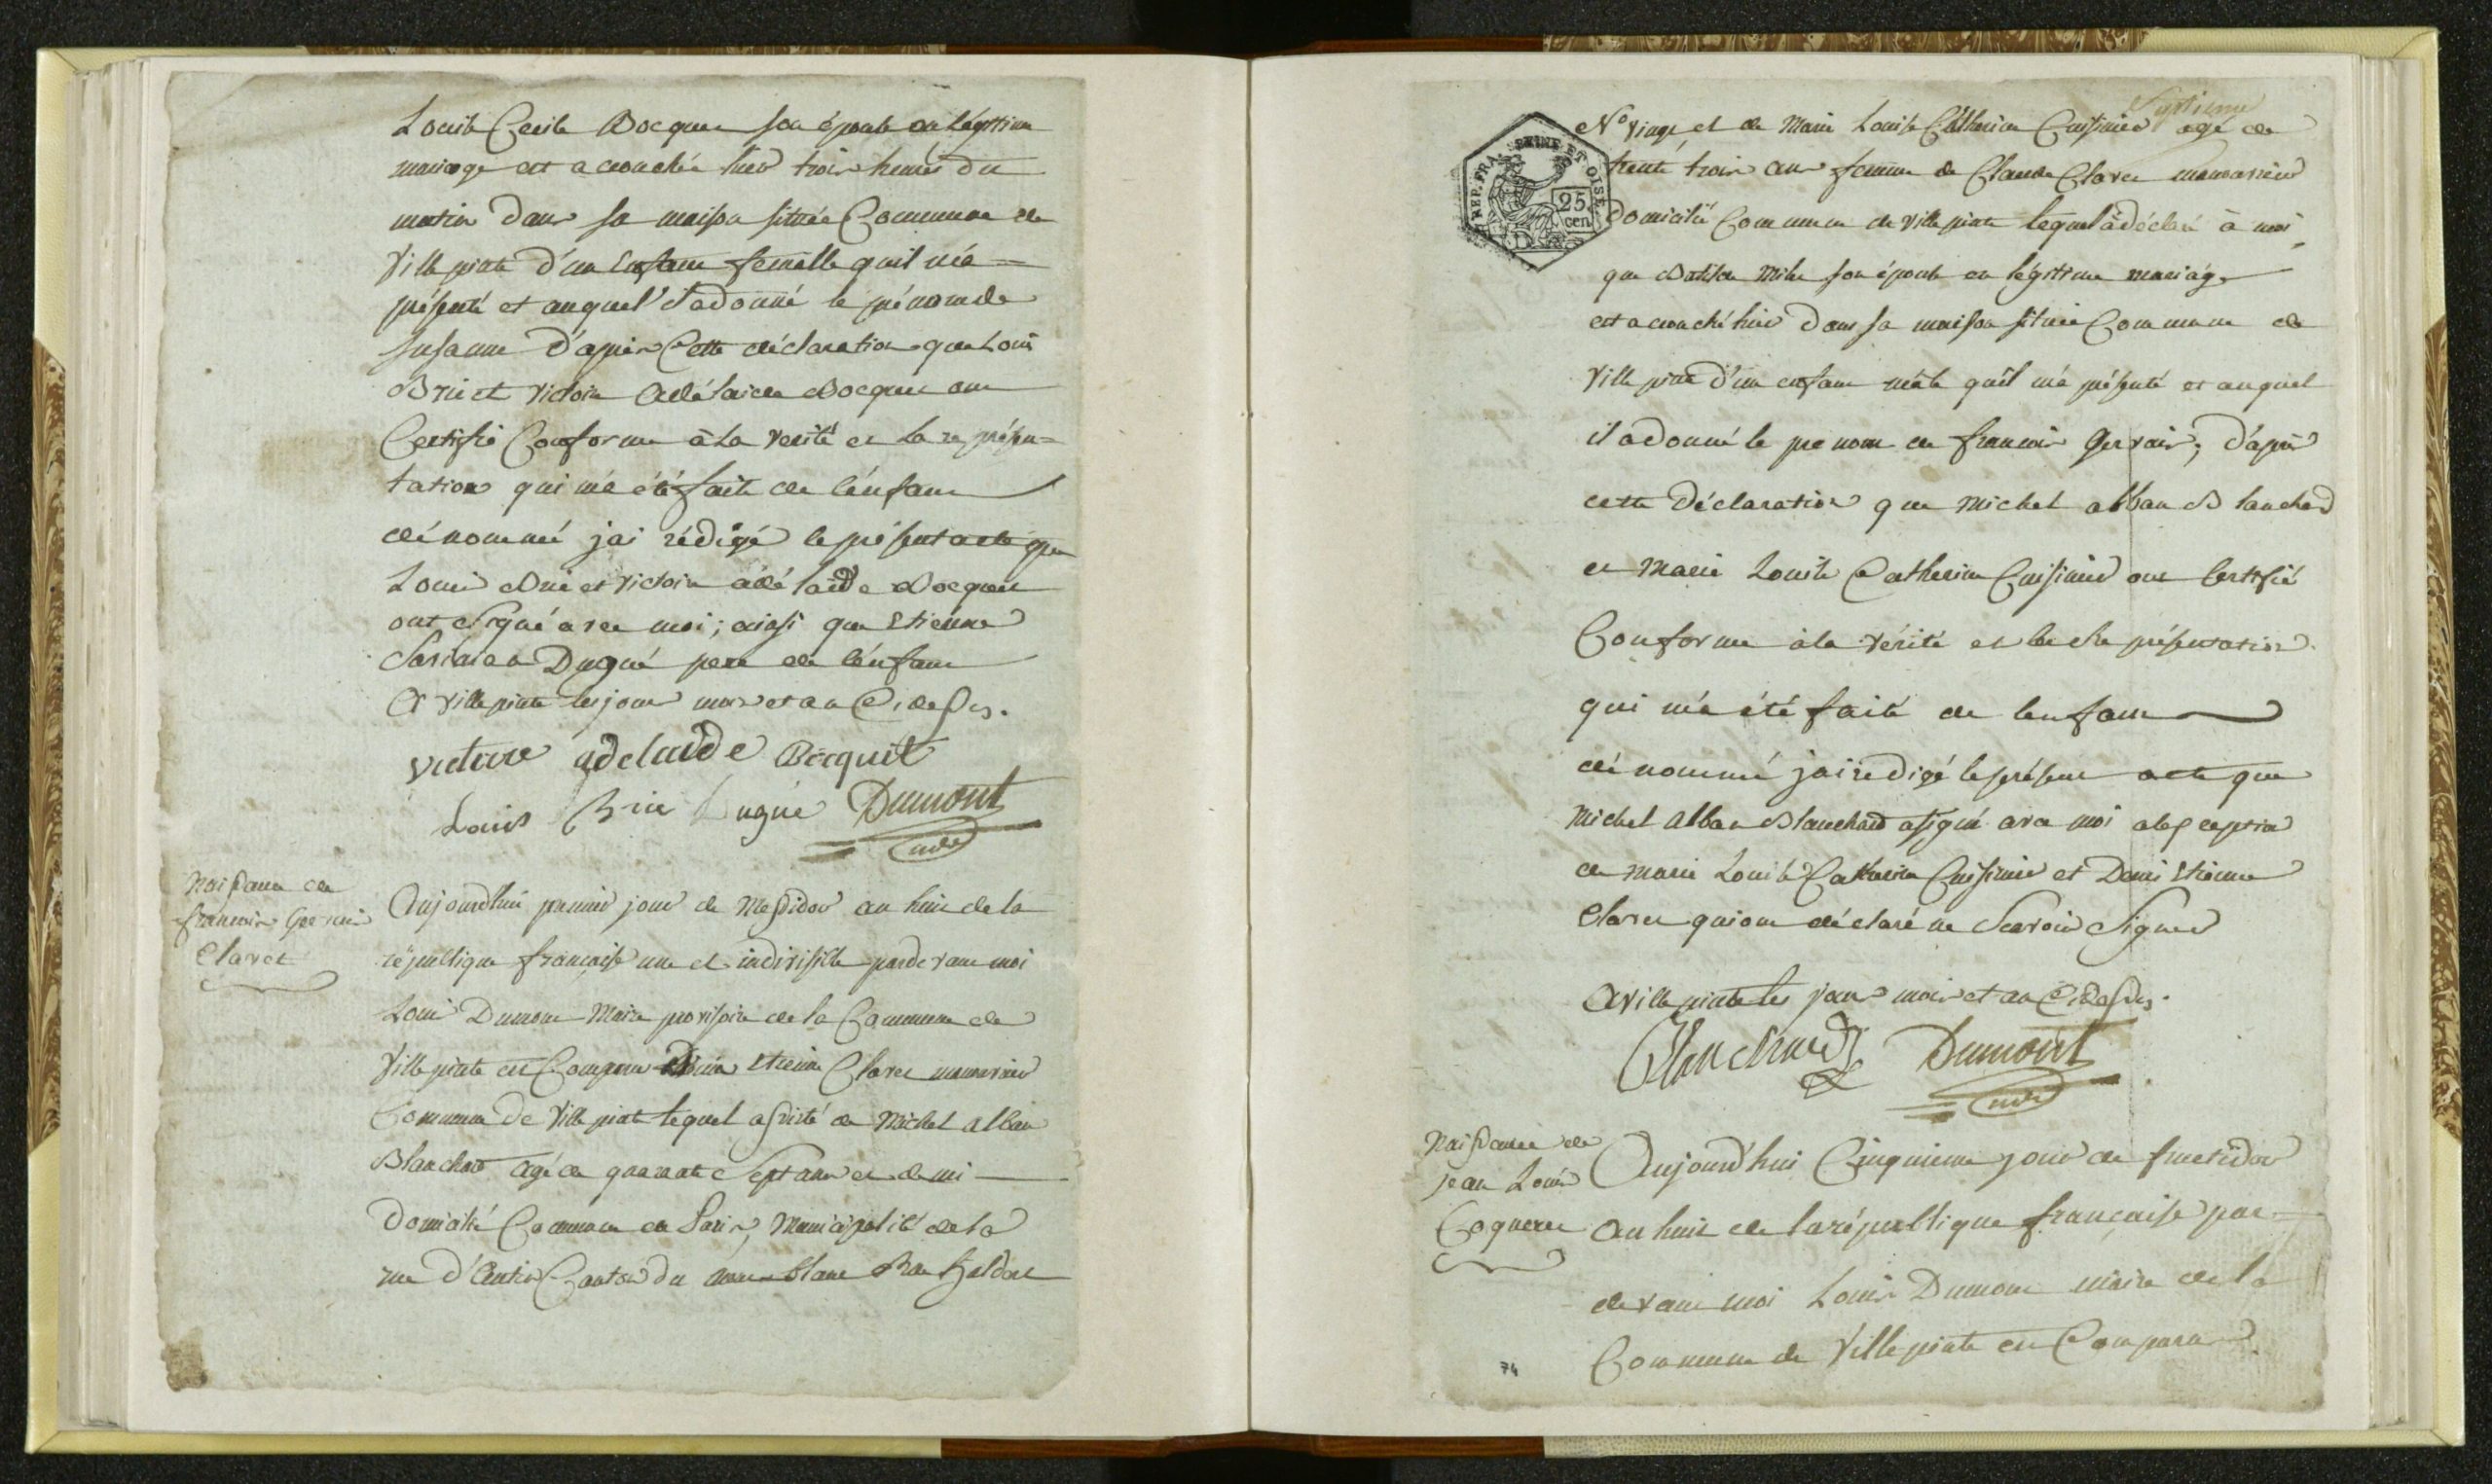 Louise Cecile Bocquet son épouse en légitime
mariage est acouchée hier trois heures du
matin dans sa maison située Commune de
Villepinte d'un Enfant femelle quil m'a =
présenté et auquel il a donné le prénom de
Susanne d'après Cette déclaration que Louis
Brie et Victoire Adélaide Bocquet ont
Certifié Conforme à la verité et la représen=
tation qui m'a été faite de l'enfant
dénommé jai rédigé le présent acte que
Louis Brie et Victoire adélaide Bocquet
ont signé avec moi ; ainsi que Etienne
Dugué pere de l'enfant
A villepinte les jour mois et an Cidessus.
victoire adelaide Bocquet
Louis Brie Dugué Dumont
Naissance de
francois Gervais
Claret
Aujourdhui premier jour de Messidor an huit de la
république française une et indivisible pardevant moi
Louis Dumont Maire provisoire de la Commune de
Villepinte est Comparu Denis Etienne Claret manouvrier
Commune de Villepinte lequel assisté de Michel alban
Blanchard agé de quarante Sept ans et demi
Domicilié Commune de Paris, Municipalité de la
rue d'Antin Canton du
Septieme
N° vingt et de Marie Louise Catherine Cuisinier agé de
trente trois ans femme de Claude Claret manouvrier
Domicilié Commune de Villepinte lequel à déclaré à moi
que Batilde Milet son épouse en légitime mariage
est acouché hier dans sa maison située Commune de
Villepinte d'un enfant mâle quil m'a présenté et auquel
il a donné le prenom de francois Gervais ; d'après
cette déclaration que Michel alban Blanchard
et Marie Louise Catherine Cuisinier ont Certifié
Conforme à la vérité et la Représentation
qui m'a été faite de l'enfant
dénommé jai redigé le présent acte que
Michel alban Blanchard a signé avec moi a lexception
de marie Louise Catherine Cuisinier et Denis Etienne
Claret qui ont déclaré ne Scavoir Signer
A villepinte les jour mois et an Cidessus.
Blanchard Dumont
Naissance de
jean Louis
Coqueret
Aujourd'hui Cinquieme jour de fructidor
an huit de la république française par
devant moi Louis Dumont maire de la
Commune de Villepinte est Comparu
74
REP. FRA. SEINE ET OISE
25
cen